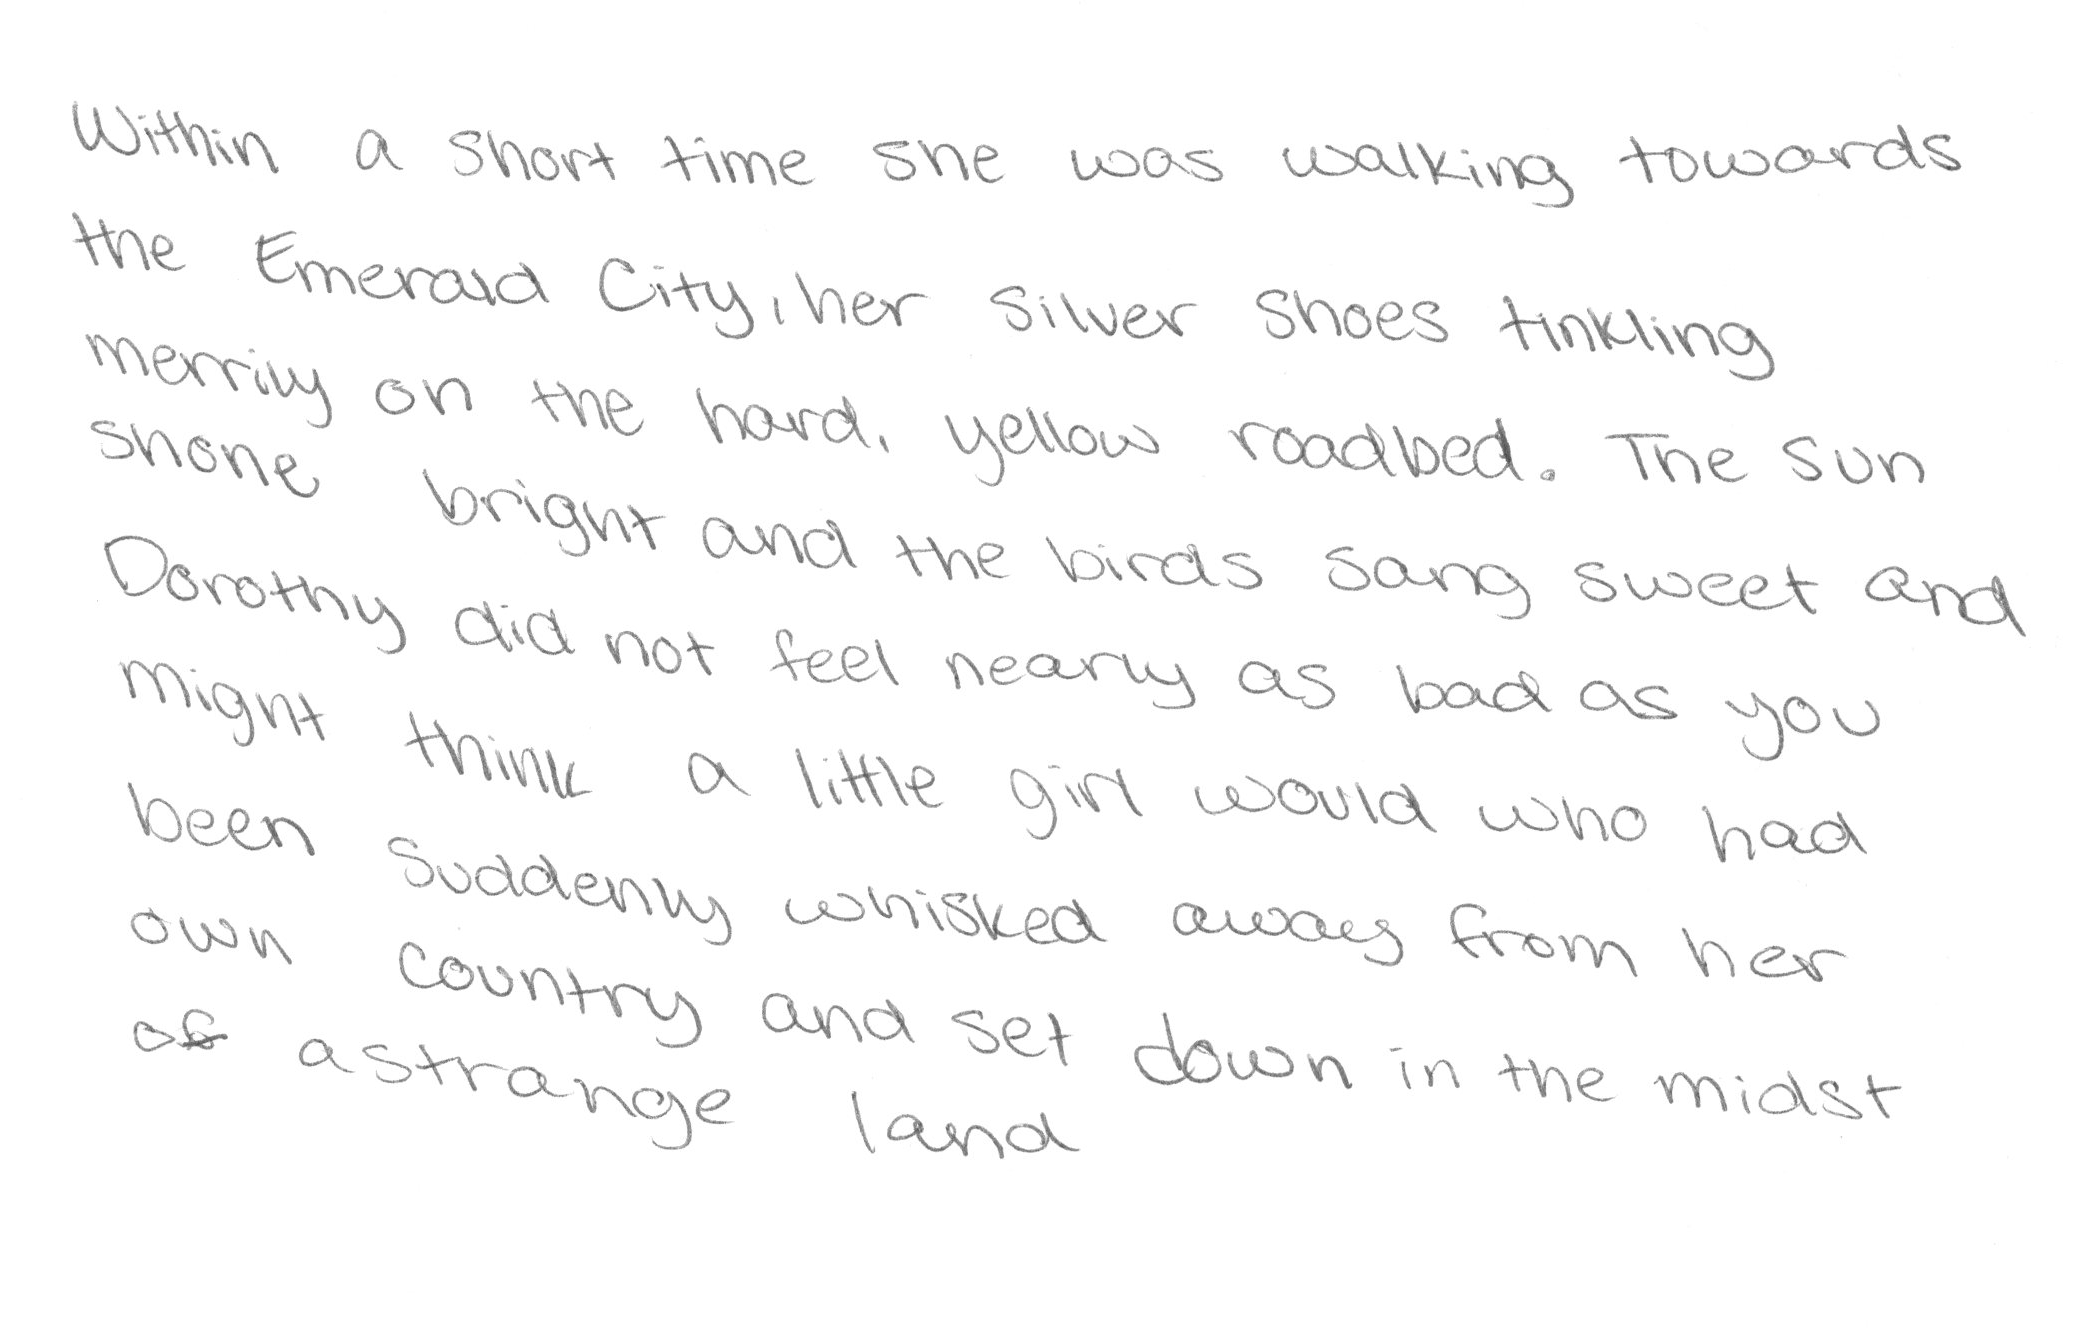 Within a short time she was walking towards
the Emerald City, her silver shoes tinkling
merrily on the hard, yellow roadbed. The sun
shone bright and the birds sang sweet and
Dorothy did not feel nearly as bad as you
might think a little girl would who had
been suddenly whisked away from her
own country and set down in the midst
of a strange land